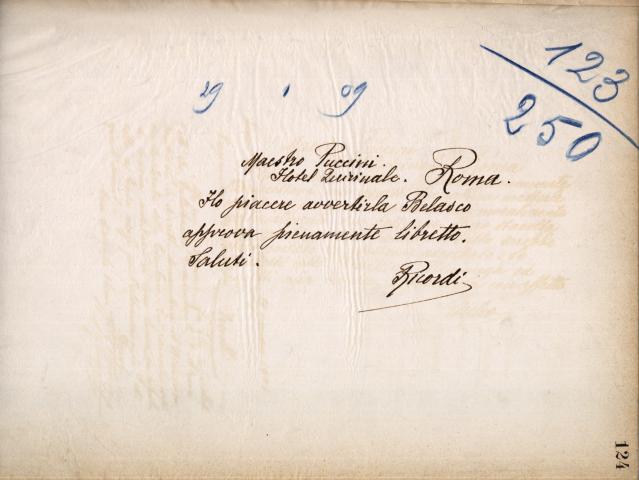 123
250
29 1 09
Maestro Puccini.
Hotel Quirinale. Roma.
Ho piacere avvertirla Belasco
approva pienamente libretto.
Saluti.
Ricordi
124